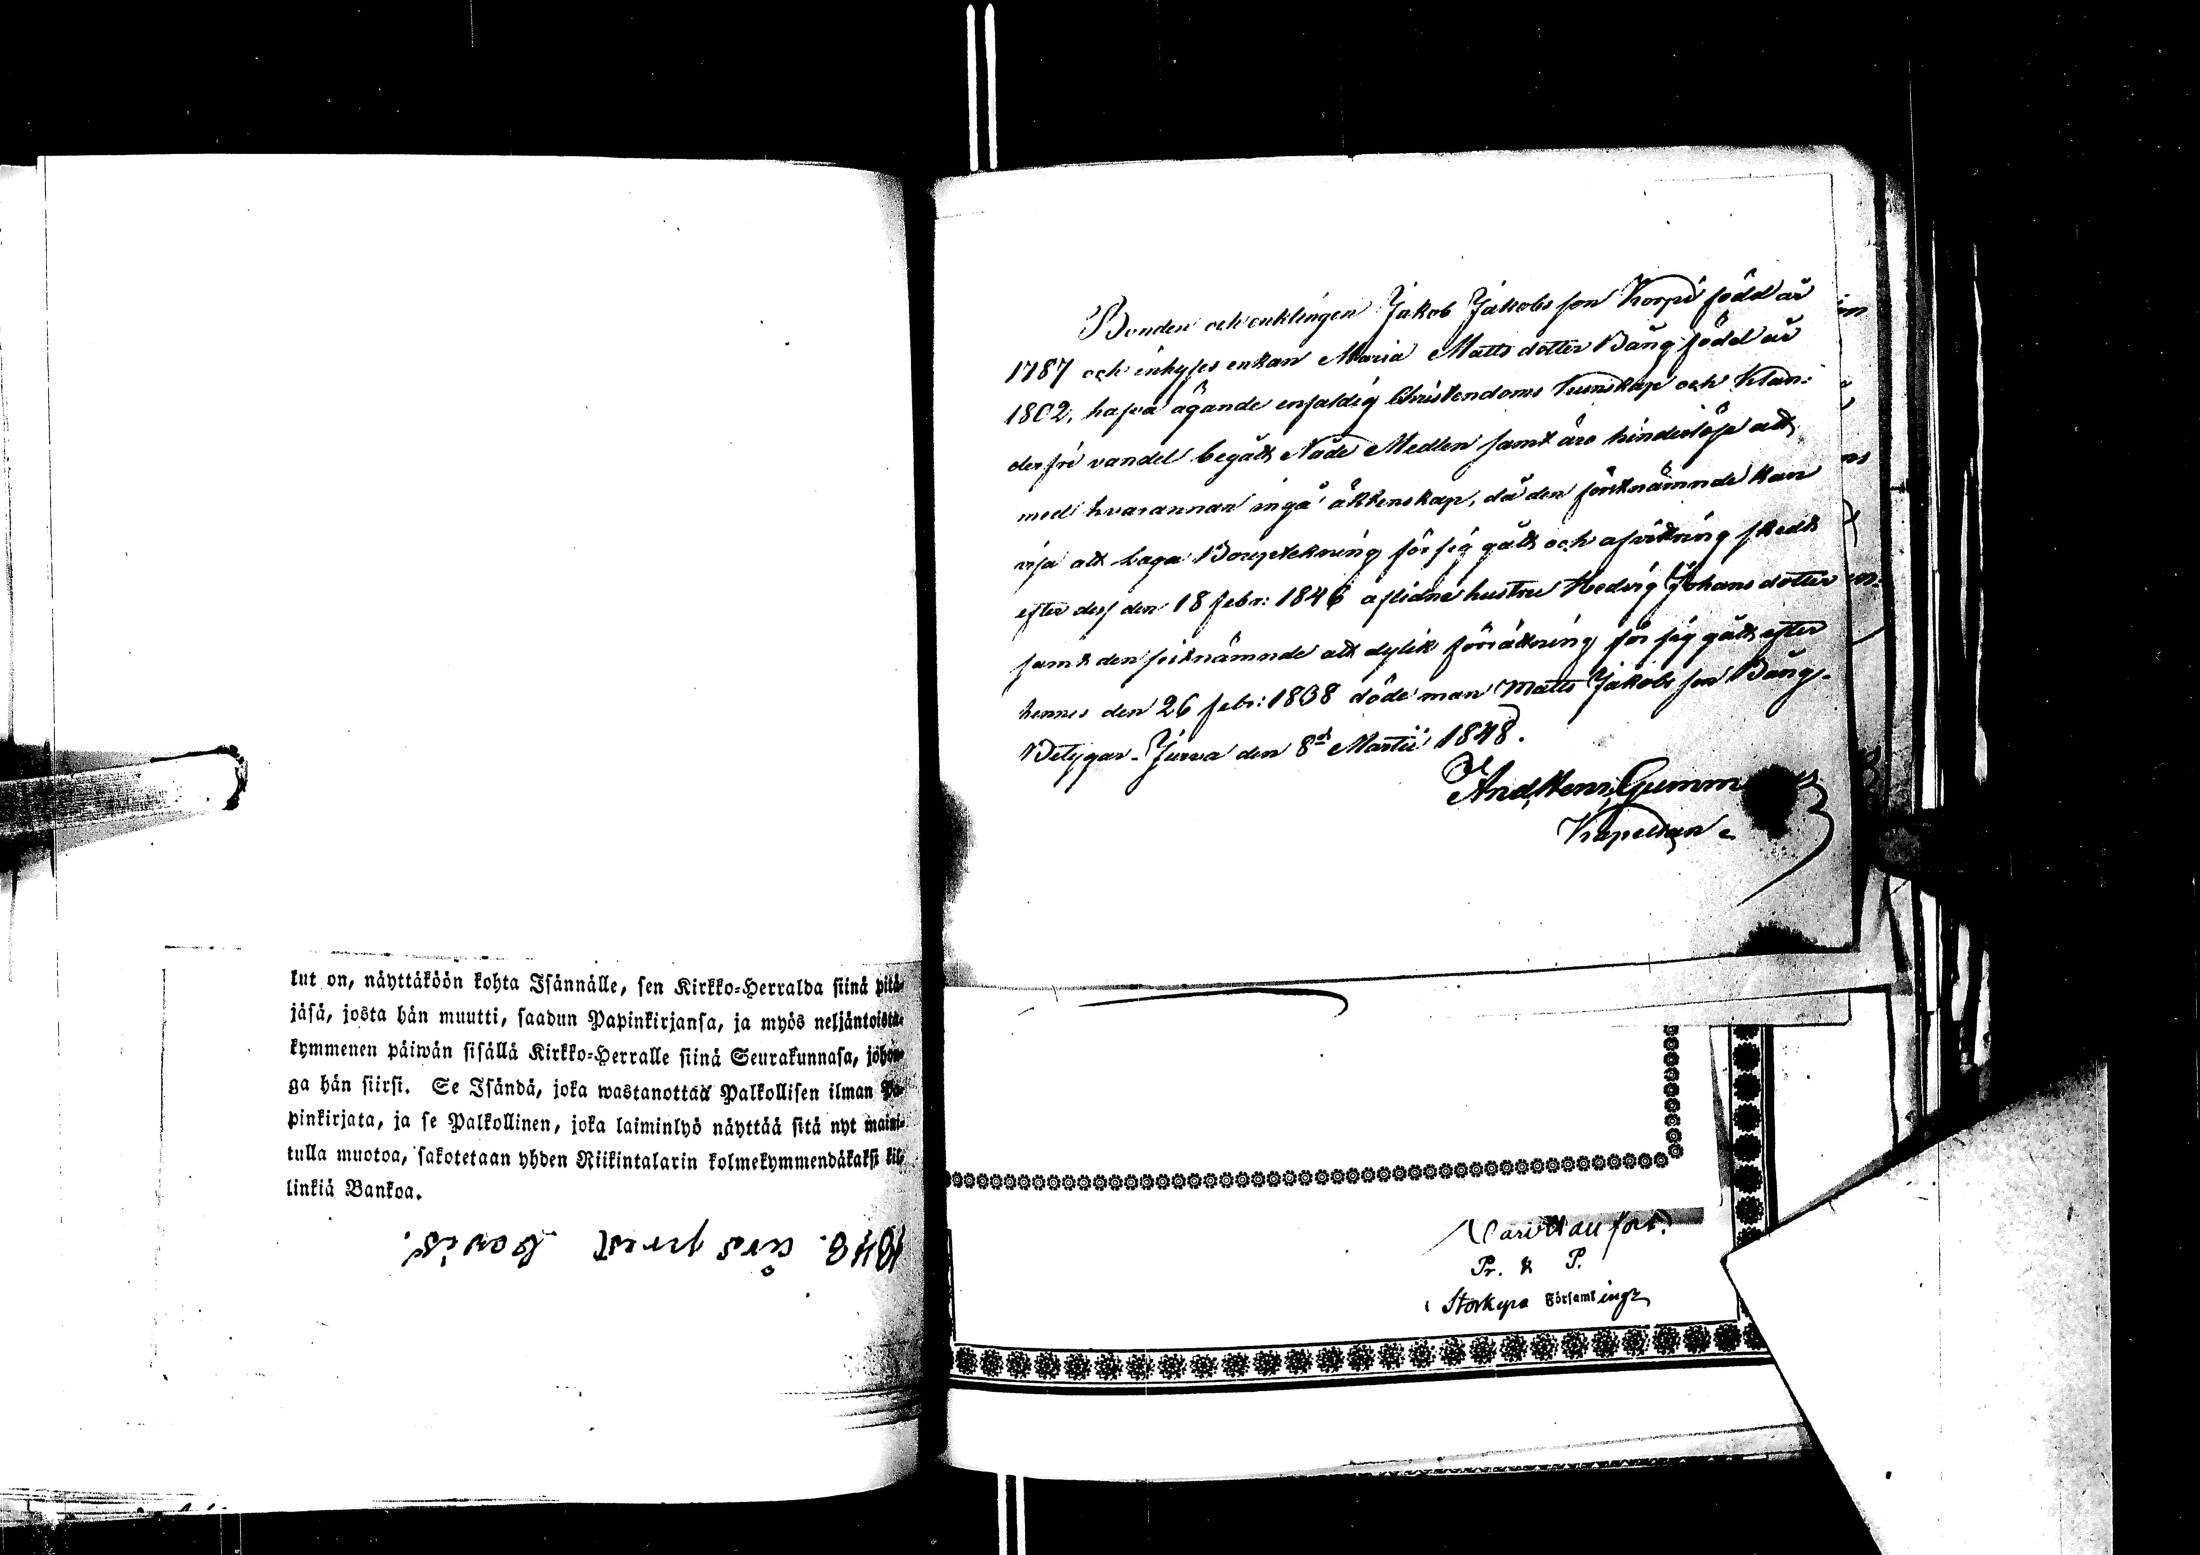 kut on, näyttäköön kohta Isännälle, sen Kirkko-Herralda siinä pitä-
jäsä, josta hän muutti, saadun Papinkirjansa, ja myös neljäntoista-
kymmenen päiwän sisällä Kirkko-Herralle siinä Seurakunnasa, johon-
ga hän siirsi. Se Isändä, joka wastanottaa Palkollisen ilman Pa-
pinkirjata, ja se Palkollinen, joka laiminlyö näyttää sitä nyt maini-
tulla muotoa, sakotetaan yhden Riikintalarin kolmekymmendäkaksi kil-
linkiä Bankoa.
1848. års prest bevis.
Bonden och enklingen Jakob Jakobsson Korpi född år
1787 och inhyses enkan Maria Mattsdotter Bång född år
1802, hafva ägande enfaldig Christendoms kunskap och klan-
derfri vandel begått Nåde Medlen samt äro hinderlöse att
med hvarannan ingå äktenskap, då den förstnämnde kan
visa att laga Bouptekning för sig gått och afvittring skedt
efter dess den 18 febr: 1846 aflidne hustru Hedvig Johansdotter
samt den sistnämnde att dylik förrättning för sig gått efter
hennes den 26 febr: 1838 döde man Matts Jakobsson Bång.
Betygar. Jurva den 8de Martii 1848.
And. Henr. Gumm
Kapellan
Pr. & P.
Storkyro Församlings